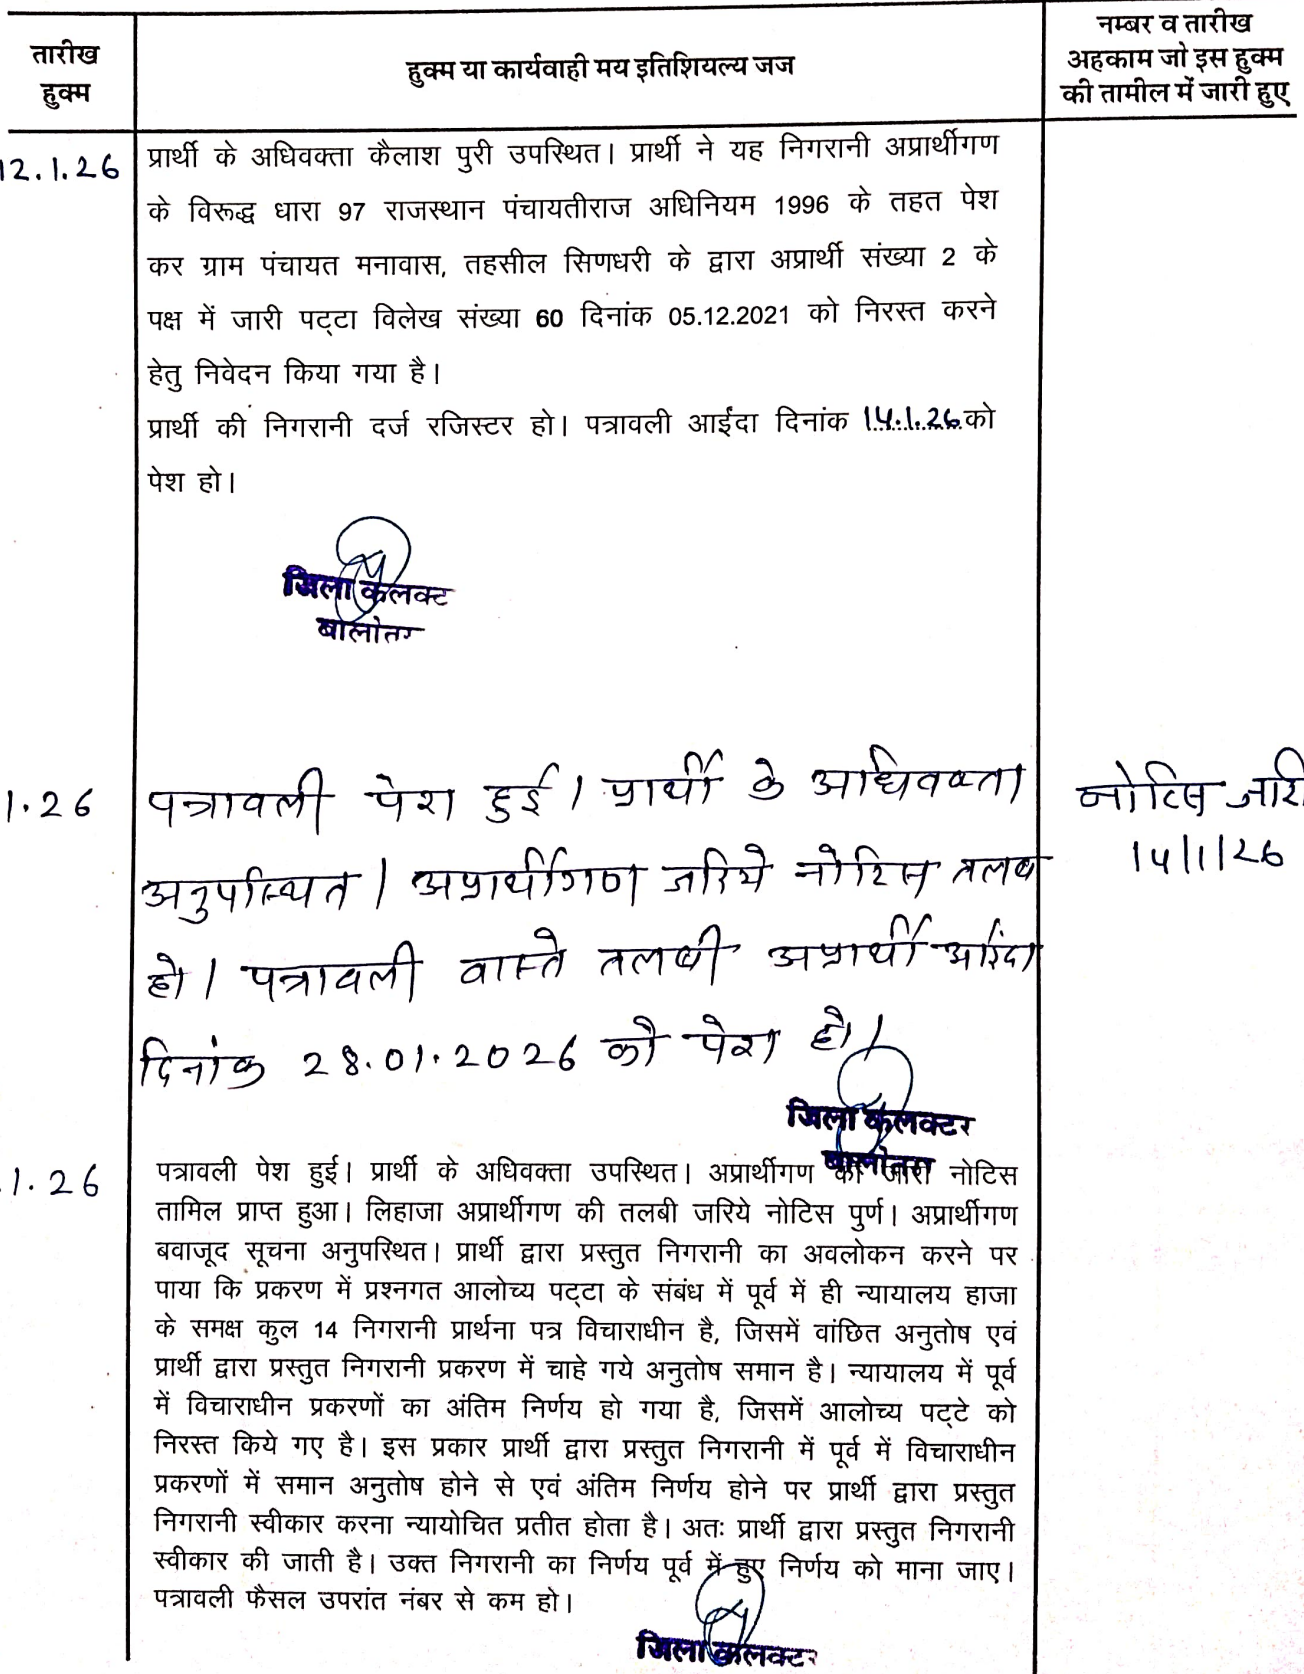 तारीख
हुक्म
हुक्म या कार्यवाही मय इतिशियल्य जज
नम्बर व तारीख
अहकाम जो इस हुक्म
की तामील में जारी हुए
12.1.26
प्रार्थी के अधिवक्ता कैलाश पुरी उपस्थित। प्रार्थी ने यह निगरानी अप्रार्थीगण
के विरूद्ध धारा 97 राजस्थान पंचायतीराज अधिनियम 1996 के तहत पेश
कर ग्राम पंचायत मनावास, तहसील सिणधरी के द्वारा अप्रार्थी संख्या 2 के
पक्ष में जारी पट्टा विलेख संख्या 60 दिनांक 05.12.2021 को निरस्त करने
हेतु निवेदन किया गया है।
प्रार्थी की निगरानी दर्ज रजिस्टर हो। पत्रावली आईंदा दिनांक 14.1.26 को
पेश हो।
जिला कलक्ट
बालोतर
1.26
पत्रावली पेश हुई। प्रार्थी के अधिवक्ता
अनुपस्थित। अप्रार्थीगण जरिये नोटिस तलब
हो। पत्रावली वास्ते तलबी अप्रार्थी आईंदा
दिनांक 28.01.2026 को पेश हो।
नोटिस जारी
14/1/26
जिला कलक्टर
बालोतरा
.1.26
पत्रावली पेश हुई। प्रार्थी के अधिवक्ता उपस्थित। अप्रार्थीगण को जारी नोटिस
तामिल प्राप्त हुआ। लिहाजा अप्रार्थीगण की तलबी जरिये नोटिस पुर्ण। अप्रार्थीगण
बवाजूद सूचना अनुपस्थित। प्रार्थी द्वारा प्रस्तुत निगरानी का अवलोकन करने पर
पाया कि प्रकरण में प्रश्नगत आलोच्य पट्टा के संबंध में पूर्व में ही न्यायालय हाजा
के समक्ष कुल 14 निगरानी प्रार्थना पत्र विचाराधीन है, जिसमें वांछित अनुतोष एवं
प्रार्थी द्वारा प्रस्तुत निगरानी प्रकरण में चाहे गये अनुतोष समान है। न्यायालय में पूर्व
में विचाराधीन प्रकरणों का अंतिम निर्णय हो गया है, जिसमें आलोच्य पट्टे को
निरस्त किये गए है। इस प्रकार प्रार्थी द्वारा प्रस्तुत निगरानी में पूर्व में विचाराधीन
प्रकरणों में समान अनुतोष होने से एवं अंतिम निर्णय होने पर प्रार्थी द्वारा प्रस्तुत
निगरानी स्वीकार करना न्यायोचित प्रतीत होता है। अतः प्रार्थी द्वारा प्रस्तुत निगरानी
स्वीकार की जाती है। उक्त निगरानी का निर्णय पूर्व में हुए निर्णय को माना जाए।
पत्रावली फैसल उपरांत नंबर से कम हो।
जिला कलक्टर